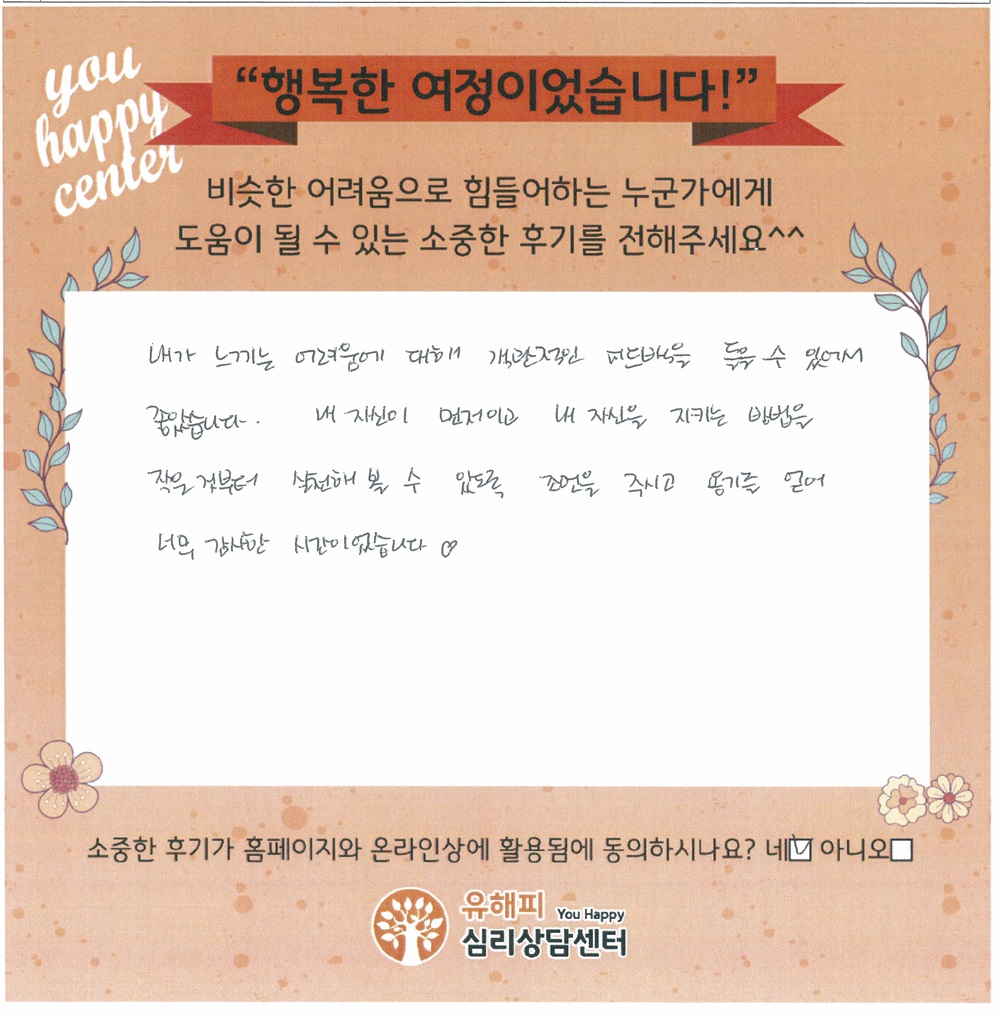 you
happy
center
“행복한 여정이었습니다!”
비슷한 어려움으로 힘들어하는 누군가에게
도움이 될 수 있는 소중한 후기를 전해주세요^^
내가 느끼는 어려움에 대해 객관적인 피드백을 들을 수 있어서
좋았습니다. 내 자신이 먼저이고 내 자신을 지키는 방법을
작은 것부터 실천해 볼 수 있도록 조언을 주시고 용기를 얻어
너무 감사한 시간이었습니다 ♡
소중한 후기가 홈페이지와 온라인상에 활용됨에 동의하시나요? 네☑ 아니오☐
유해피 You Happy
심리상담센터